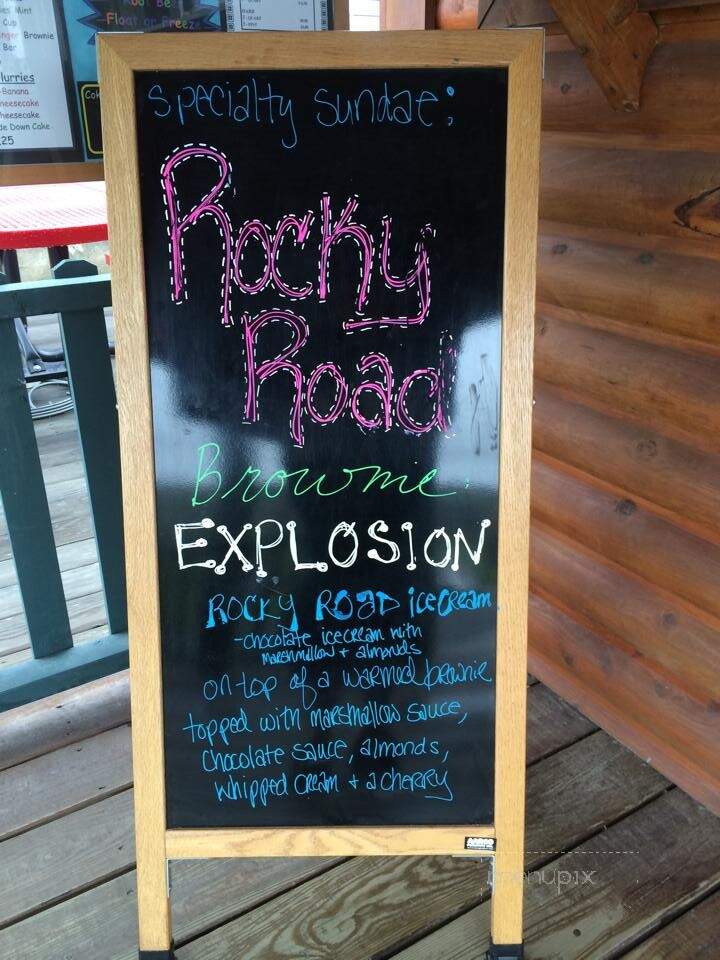 Root Beer
Float or Freeze
Mint
Cup
Brownie
Bar
lurries
-Banana
heesecake
heesecake
de Down Cake
.25
Specialty Sundae:
Rocky
Road
Brownie
EXPLOSION
ROCKY ROAD ice cream
-chocolate ice cream with
marshmallow + almonds
on top of a warmed brownie
topped with marshmallow sauce,
chocolate sauce, almonds,
whipped cream + a cherry
menupix